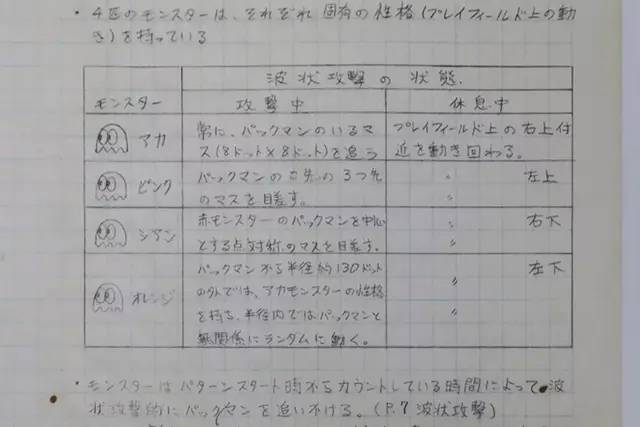 ・4匹のモンスターは、それぞれ固有の性格(プレイフィールド上の動
き)を持っている
波状攻撃の状態.
モンスター 攻撃中 休息中
アカ
常に、パックマンのいるマ
ス(8ドット×8ドット)を追う
プレイフィールド上の右上付
近を動き回わる。
ピンク
パックマンの口先の3つ先
のマスを目差す。
〃 左上
〃
シアン
赤モンスターのパックマンを中心
とする点対称.のマスを目差す.
〃 右下
〃
オレンジ
パックマンから半径約130ドット
の外では、アカモンスターの性格
を持る、半径内ではパックマンと
無関係にランダムに動く。
〃 左下
〃
・モンスターはパターンスタート時からカウントしている時間によって、波
状攻撃的にパックマンを追い かける。(P.7 波状攻撃)